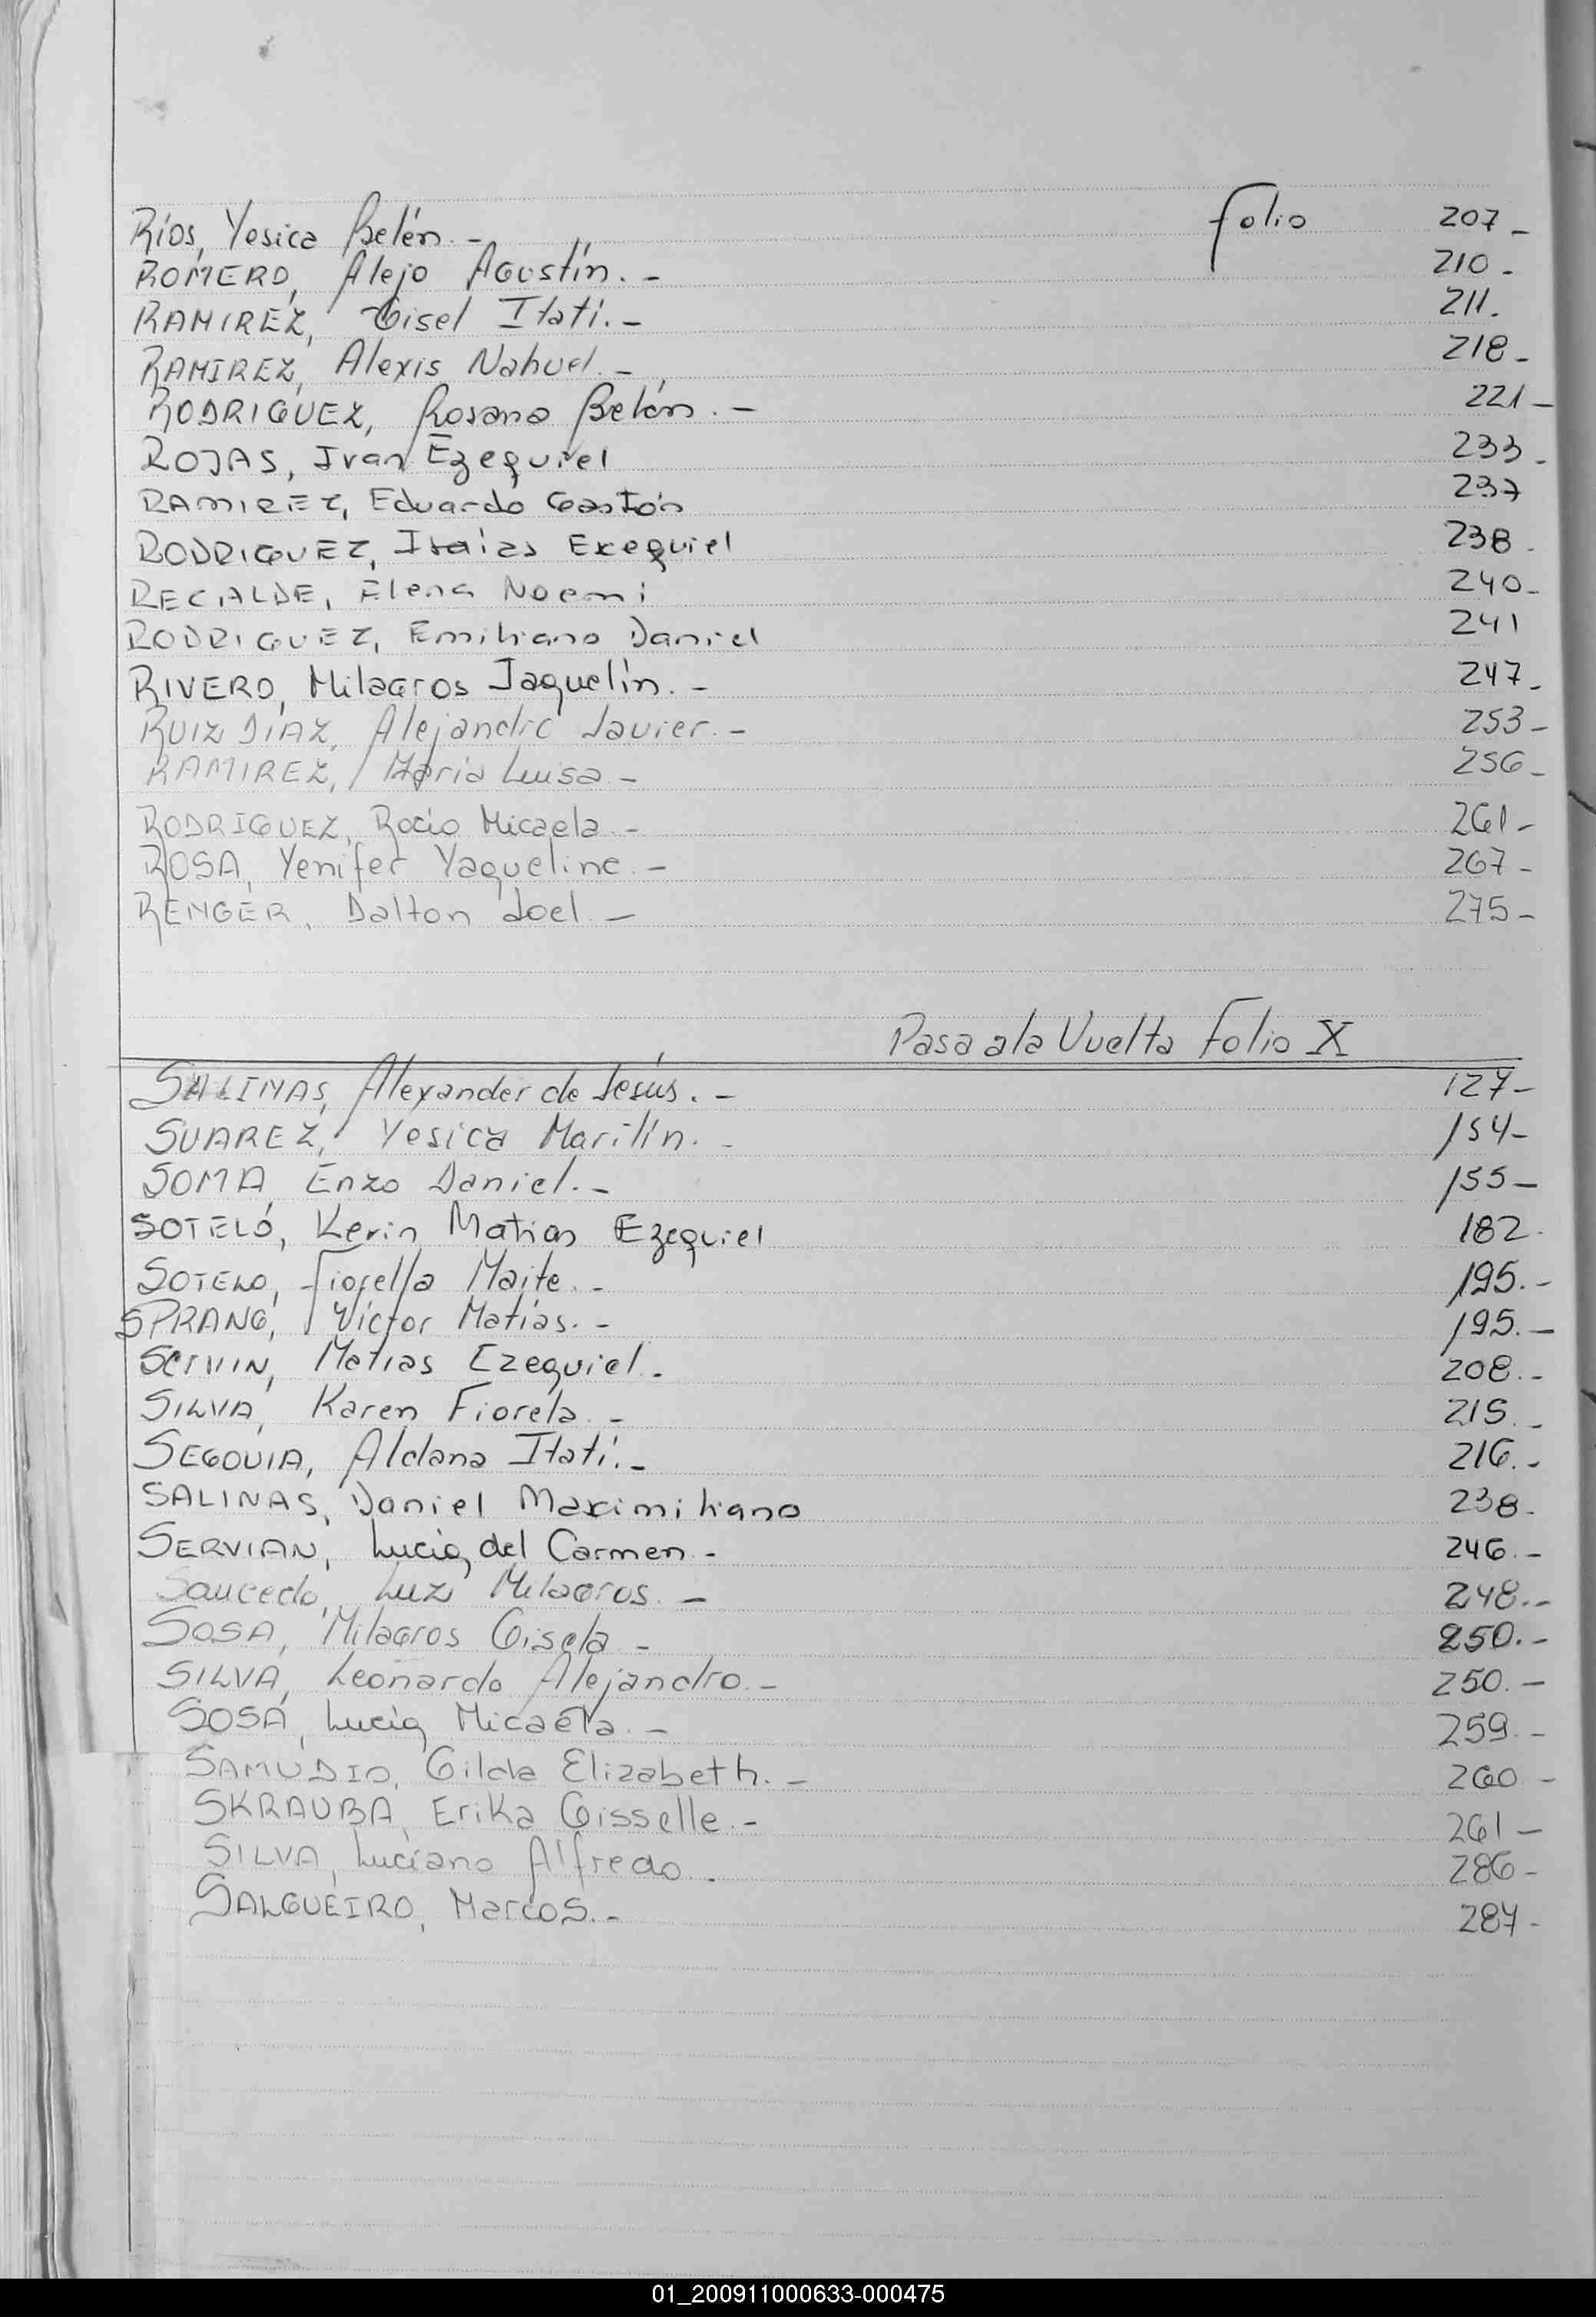 Ríos, Yesica Belén.- folio 207-
ROMERO, Alejo Agustín.- 210-
RAMIREZ, Gisel Itatí.- 211.
RAMIREZ, Alexis Nahuel.- 218-
RODRIGUEZ, Rosana Belén.- 221-
ROJAS, Ivan Ezequiel 233-
RAMIREZ, Eduardo Gastón 237
RODRIGUEZ, Isaías Exequiel 238.
RECALDE, Elena Noemi 240-
RODRIGUEZ, Emiliano Daniel 241
RIVERO, Milagros Jaquelín.- 247-
RUIZ DIAZ, Alejandro Javier.- 253-
RAMIREZ, María Luisa.- 256-
RODRIGUEZ, Rocío Micaela.- 261-
ROSA, Yenifer Yaqueline.- 267-
RENGER, Dalton Joel.- 275-
Pasa a la Vuelta Folio X
SALINAS, Alexander de Jesús.- 127-
SUAREZ, Yesica Marilín.- 154-
SOMA, Enzo Daniel.- 155-
SOTELO, Kevin Matias Ezequiel 182-
SOTELO, Fiorella Maite.- 195.-
SPRANG, Víctor Matías.- 195.-
Matias Ezequiel.- 208.-
SILVA, Karen Fiorela.- 215.-
SEGOVIA, Aldana Itatí.- 216.-
SALINAS, Daniel Maximiliano 238-
SERVIAN, Lucia del Carmen.- 246.-
Saucedo, Luz Milagros.- 248.-
SOSA, Milagros Gisela.- 250.-
SILVA, Leonardo Alejandro.- 250.-
SOSA, Lucia Micaela.- 259.-
SAMUDIO, Gilda Elizabeth.- 260-
SKRAUBA, Erika Gisselle.- 261-
SILVA, Luciano Alfredo.- 286-
SALGUEIRO, Marcos.- 287-
01_200911000633-000475